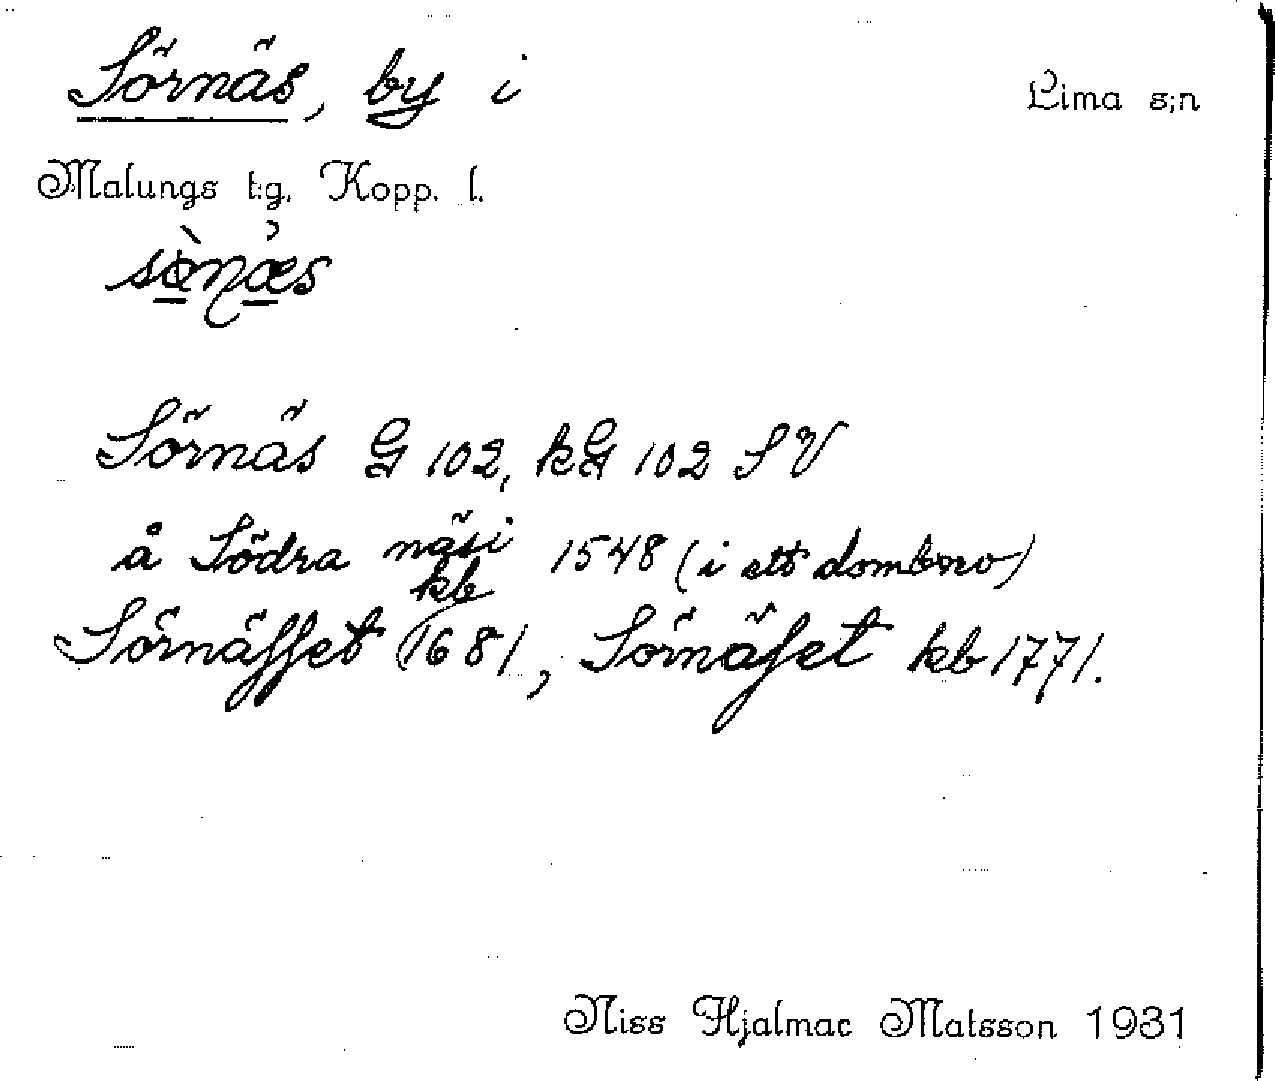 Sörnäs, by i Lima s:n
Malungs t:g, Kopp. l.
Sörnäs G 102, kG 102 SV
å Södra näsi 1548 (i ett dombrev)
Sörnässet kb 1681, Sörnäset kb 1771.
Niss Hjalmar Matsson 1931